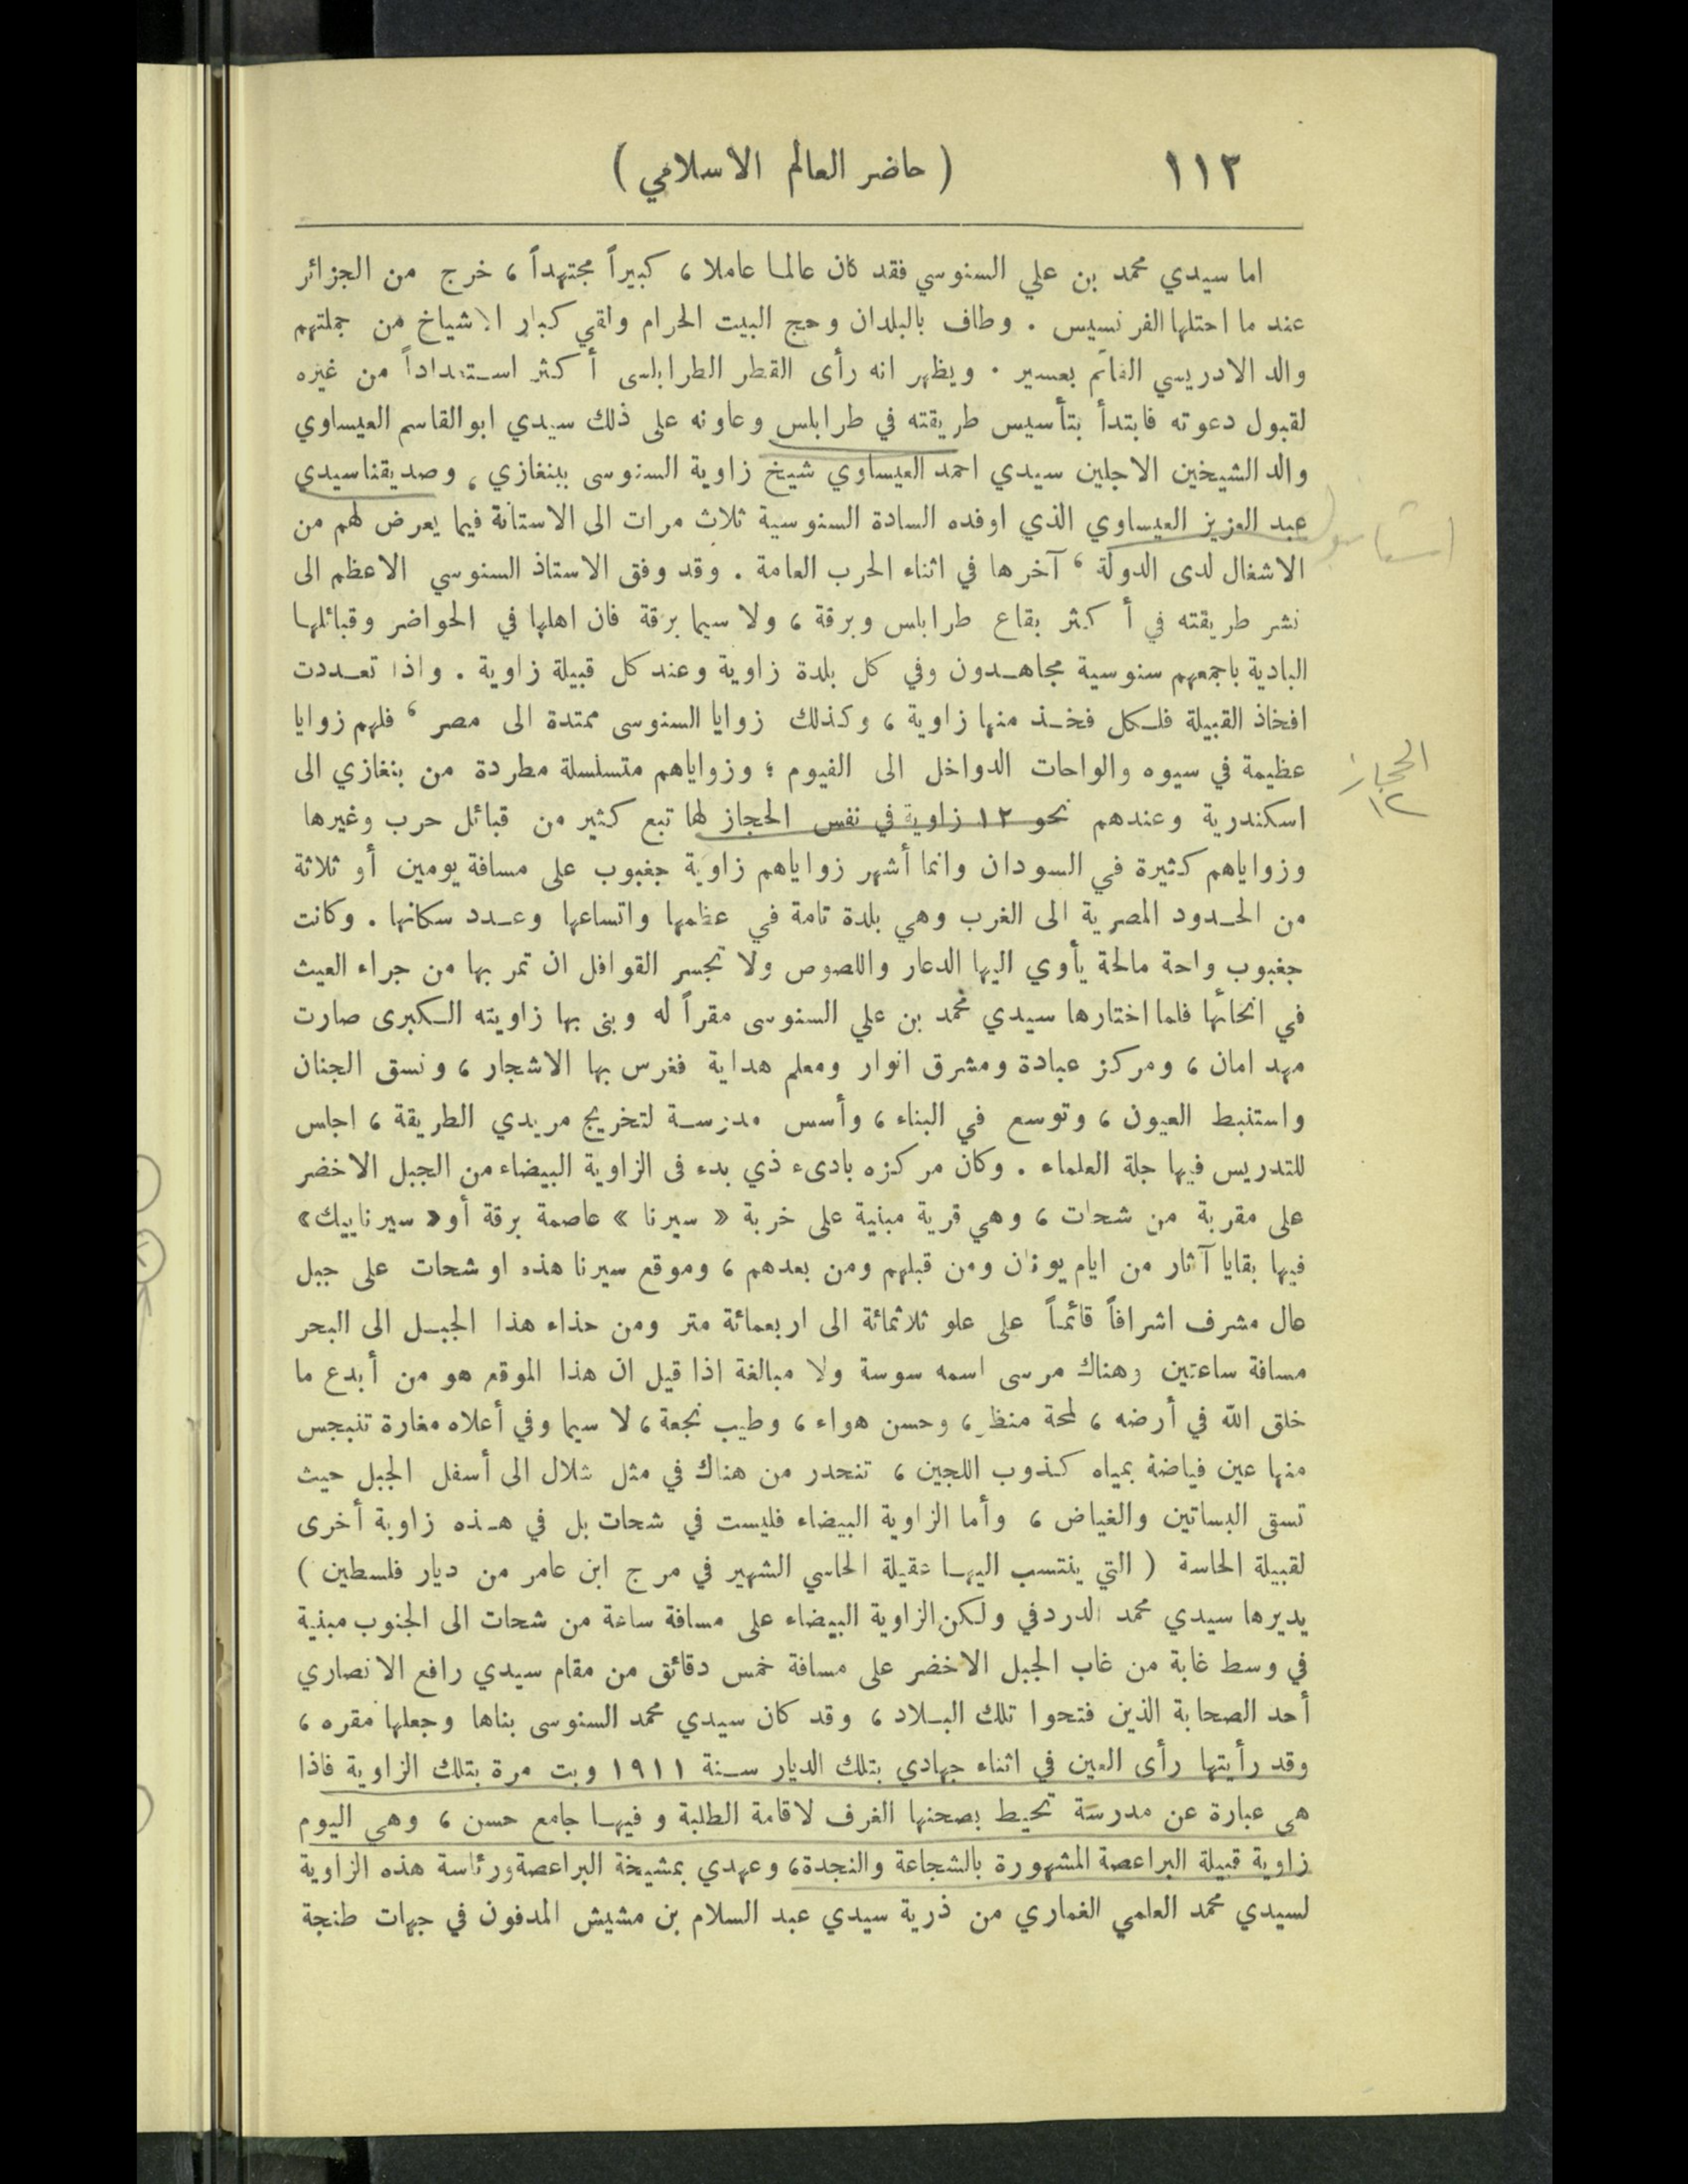 ١١٢
( حاضر العالم الاسلامي )
اما سيدي محمد بن علي السنوسي فقد كان عالما عاملا ، كبيراً مجتهداً ، خرج من الجزائر
عند ما احتلها الفرنسيس . وطاف بالبلدان وحج البيت الحرام ولقي كبار الاشياخ من جملتهم
والد الادريسي القائم بعسير . ويظهر انه رأى القطر الطرابلسى أكثر استعداداً من غيره
لقبول دعوته فابتدأ بتأسيس طريقته في طرابلس وعاونه على ذلك سيدي ابو القاسم العيساوي
والد الشيخين الاجلين سيدي احمد العيساوي شيخ زاوية السنوسى ببنغازي ، وصديقنا سيدي
عبد العزيز العيساوي الذي اوفده السادة السنوسية ثلاث مرات الى الاستانة فيما يعرض لهم من
الاشغال لدى الدولة ، آخرها في اثناء الحرب العامة . وقد وفق الاستاذ السنوسي الاعظم الى
نشر طريقته في أكثر بقاع طرابلس وبرقة ، ولا سيما برقة فان اهلها في الحواضر وقبائلها
البادية باجمعهم سنوسية مجاهدون وفي كل بلدة زاوية وعند كل قبيلة زاوية . واذا تعددت
افخاذ القبيلة فلكل فخذ منها زاوية ، وكذلك زوايا السنوسى ممتدة الى مصر ، فلهم زوايا
عظيمة في سيوه والواحات الدواخل الى الفيوم ؛ وزواياهم متسلسلة مطردة من بنغازي الى
اسكندرية وعندهم نحو ١٢ زاوية في نفس الحجاز لها تبع كثير من قبائل حرب وغيرها
وزواياهم كثيرة في السودان وانما أشهر زواياهم زاوية جغبوب على مسافة يومين أو ثلاثة
من الحدود المصرية الى الغرب وهي بلدة تامة في عظمها واتساعها وعدد سكانها . وكانت
جغبوب واحة مالحة يأوي اليها الدعار واللصوص ولا تجسر القوافل ان تمر بها من جراء العيث
في انحائها فلما اختارها سيدي محمد بن علي السنوسى مقراً له وبنى بها زاويته الكبرى صارت
مهد امان ، ومركز عبادة ومشرق انوار ومعلم هداية فغرس بها الاشجار ، ونسق الجنان
واستنبط العيون ، وتوسع في البناء ، وأسس مدرسة لتخريج مريدي الطريقة ، اجلس
للتدريس فيها جلة العلماء . وكان مركزه بادىء ذي بدء فى الزاوية البيضاء من الجبل الاخضر
على مقربة من شحات ، وهي قرية مبنية على خربة « سيرنا » عاصمة برقة أو « سيرناييك »
فيها بقايا آثار من ايام يونان ومن قبلهم ومن بعدهم ، وموقع سيرنا هذه او شحات على جبل
عال مشرف اشرافاً قائماً على علو ثلاثمائة الى اربعمائة متر ومن حذاء هذا الجبل الى البحر
مسافة ساعتين وهناك مرسى اسمه سوسة ولا مبالغة اذا قيل ان هذا الموقع هو من أبدع ما
خلق الله في أرضه ، لمحة منظر ، وحسن هواء ، وطيب نجعة ، لا سيما وفي أعلاه مغارة تنبجس
منها عين فياضة بمياه كذوب اللجين ، تنحدر من هناك في مثل شلال الى أسفل الجبل حيث
تسقى البساتين والغياض ، وأما الزاوية البيضاء فليست في شحات بل في هذه زاوية أخرى
لقبيلة الحاسة ( التي ينتسب اليها عقيلة الحاسي الشهير في مرج ابن عامر من ديار فلسطين )
يديرها سيدي محمد الدردفي ولكن الزاوية البيضاء على مسافة ساعة من شحات الى الجنوب مبنية
في وسط غابة من غاب الجبل الاخضر على مسافة خمس دقائق من مقام سيدي رافع الانصاري
أحد الصحابة الذين فتحوا تلك البلاد ، وقد كان سيدي محمد السنوسى بناها وجعلها مقره ،
وقد رأيتها رأى العين في اثناء جهادي بتلك الديار سنة ١٩١١ وبت مرة بتلك الزاوية فاذا
هى عبارة عن مدرسة تحيط بصحنها الغرف لاقامة الطلبة وفيها جامع حسن ، وهي اليوم
زاوية قبيلة البراعصة المشهورة بالشجاعة والنجدة، وعهدي بمشيخة البراعصة ورئاسة هذه الزاوية
لسيدي محمد العلمي الغماري من ذرية سيدي عبد السلام بن مشيش المدفون في جهات طنجة
استانبول
الحجاز
١٢